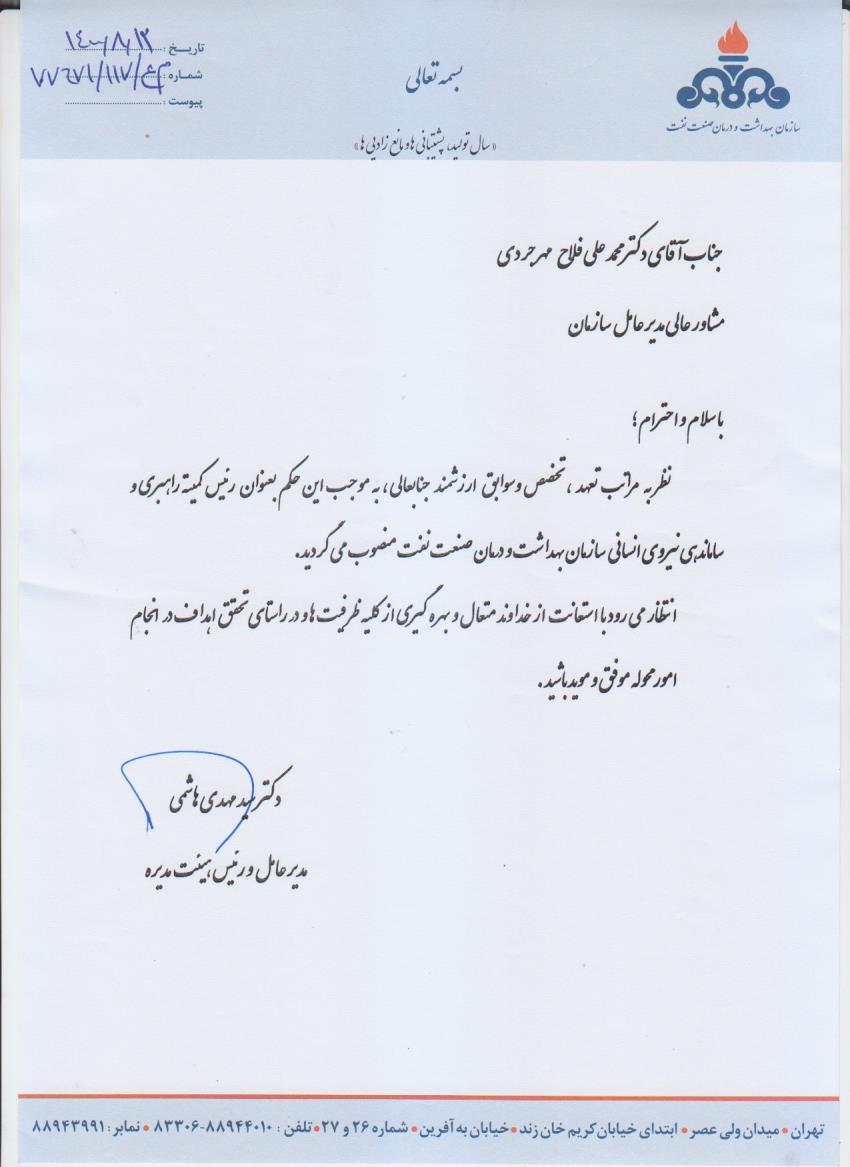 بسمه تعالی
تاریخ: ۱۴۰۰/۸/۱۲
شماره:
پیوست:
سازمان بهداشت و درمان صنعت نفت
«سال تولید، پشتیبانی ها و مانع زدایی ها»
جناب آقای دکتر محمد علی فلاح مهرجردی
مشاور عالی مدیر عامل سازمان
با سلام و احترام؛
نظر به مراتب تعهد، تخصص و سوابق ارزشمند جنابعالی، به موجب این حکم بعنوان رئیس کمیته راهبری و
ساماندهی نیروی انسانی سازمان بهداشت و درمان صنعت نفت منصوب می گردید.
انتظار می رود با استعانت از خداوند متعال و بهره گیری از کلیه ظرفیت ها و در راستای تحقق اهداف در انجام
امور محوله موفق و موید باشید.
دکتر سید مهدی هاشمی
مدیر عامل و رئیس هیئت مدیره
تهران • میدان ولی عصر • ابتدای خیابان کریم خان زند • خیابان به آفرین • شماره ۲۶ و ۲۷ • تلفن: ۸۸۹۴۴۰۱۰-۸۳۳۰۶ • نمابر: ۸۸۹۴۳۹۹۱